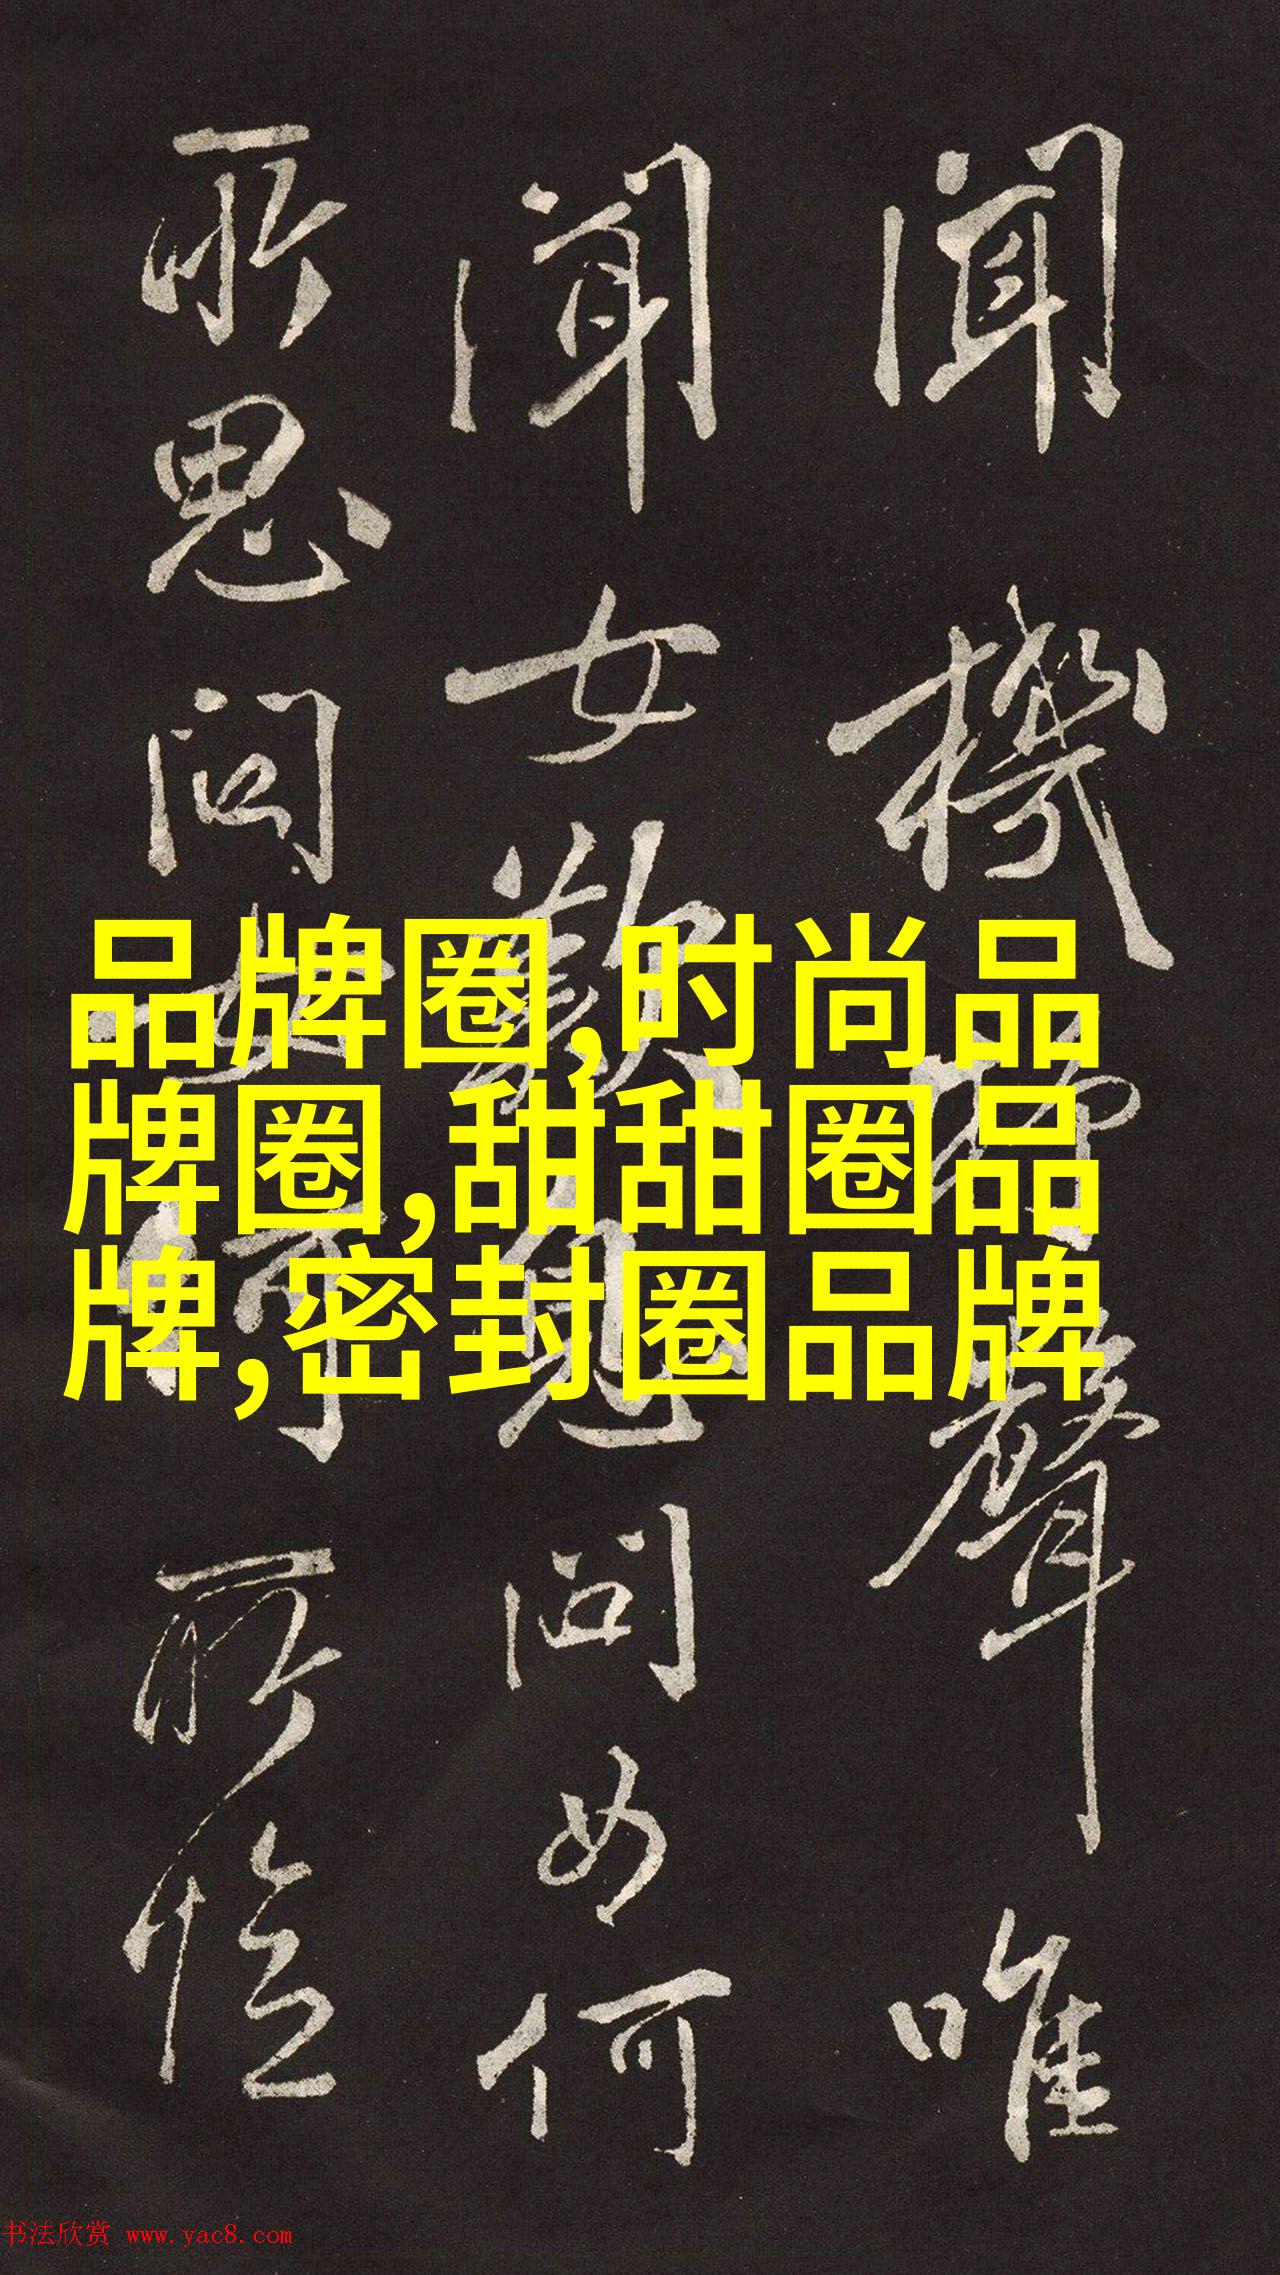 聞機杼聲唯
聞女歎息問女何
所思問女何所憶
品牌圈,时尚品
牌圈,甜甜圈品
牌,密封圈品牌
书法欣赏 www.yac8.com